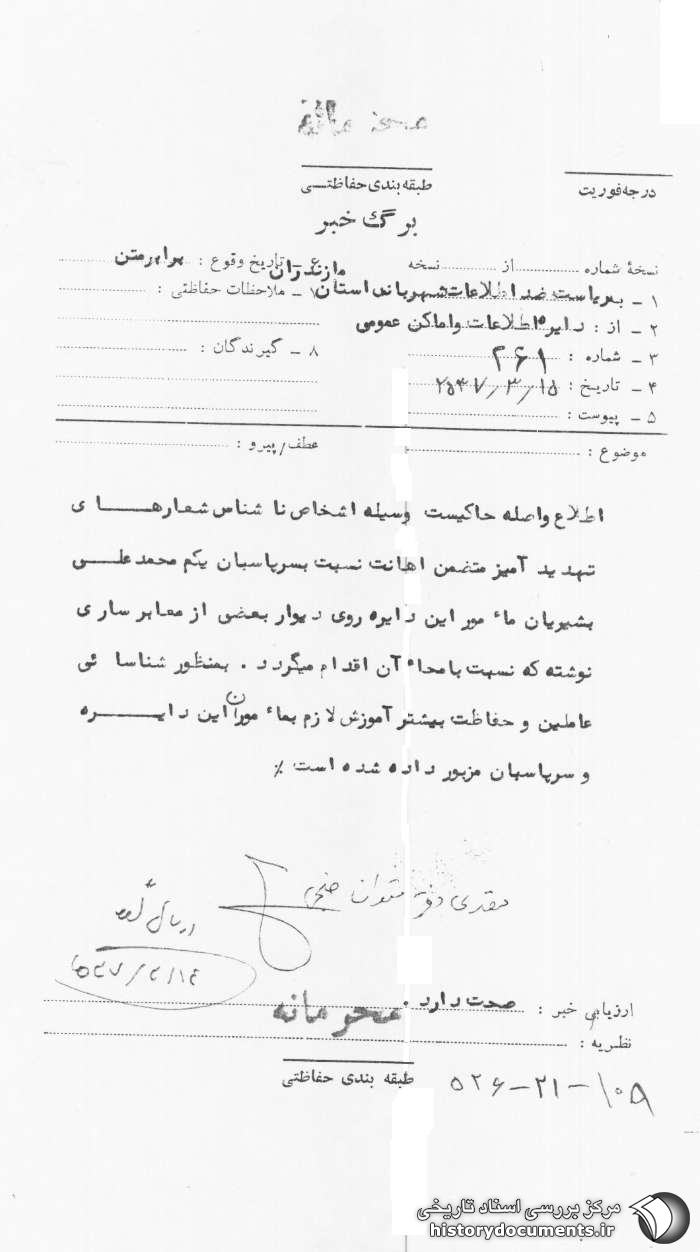 محرمانه
درجه فوریت
طبقه بندی حفاظتی
برگ خبر
نسخهٔ شماره ........ از ........ نسخه
۶ ـ تاریخ وقوع : برابر متن
۱ ـ بریاست ضد اطلاعات شهربانی استان مازندران
۷ ـ ملاحظات حفاظتی :
۲ ـ از : دایره اطلاعات و اماکن عمومی
۳ ـ شماره : ۲۶۱
۸ ـ گیرندگان :
۴ ـ تاریخ : ۲۵۳۷/۳/۱۵
۵ ـ پیوست :
موضوع :
عطف/پیرو :
اطلاع واصله حاکیست وسیله اشخاص نا شناس شعارهای
تهدید آمیز متضمن اهانت نسبت بسرپاسبان یکم محمد علی
بشیریان ماء مور این دایره روی دیوار بعضی از معابر ساری
نوشته که نسبت بامحاء آن اقدام میگردد . بمنظور شناسا ئی
عاملین و حفاظت بیشتر آموزش لازم بماء موران این دایره
و سرپاسبان مزبور داده شده است ٪
ارزیابی خبر : صحت دارد .
محرمانه
نظریه :
طبقه بندی حفاظتی
۵۲۶-۲۱-۱۰۵
مرکز بررسی اسناد تاریخی
historydocuments.ir